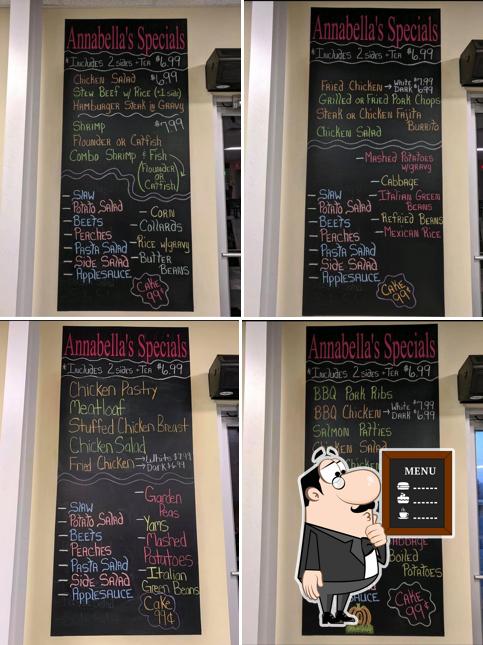 Annabella's Specials
*Includes 2 sides + Tea $6.99
Chicken Salad $6.99
Stew Beef w/ Rice (+1 side)
Hamburger Steak in Gravy
Shrimp $7.99
Flounder or Catfish
Combo Shrimp & Fish
(Flounder
or
Catfish)
- Slaw
- Potato Salad
- Beets
- Peaches
- Pasta Salad
- Side Salad
- Applesauce
- Corn
- Collards
- Rice w/gravy
- Butter
Beans
Cake
99¢
Annabella's Specials
*Includes 2 sides + Tea $6.99
Fried Chicken → White $7.99
Dark $6.99
Grilled or Fried Pork Chops
Steak or Chicken Fajita
Burrito
Chicken Salad
- Mashed Potatoes
w/gravy
- Cabbage
- Italian Green
Beans
- Refried Beans
- Mexican Rice
- Slaw
- Potato Salad
- Beets
- Peaches
- Pasta Salad
- Side Salad
- Applesauce
Cake
99¢
Annabella's Specials
*Includes 2 sides + Tea $6.99
Chicken Pastry
Meatloaf
Stuffed Chicken Breast
Chicken Salad
Fried Chicken → White $7.99
→ Dark $6.99
- Slaw
- Potato Salad
- Beets
- Peaches
- Pasta Salad
- Side Salad
- Applesauce
- Garden
Peas
- Yams
- Mashed
Potatoes
- Italian
Green Beans
Cake
99¢
Annabella's Specials
*Includes 2 sides + Tea $6.99
BBQ Pork Ribs
BBQ Chicken → White $7.99
Dark $6.99
Salmon Patties
Chicken Salad
Chicken
MENU
Boiled
Potatoes
Cake
99¢